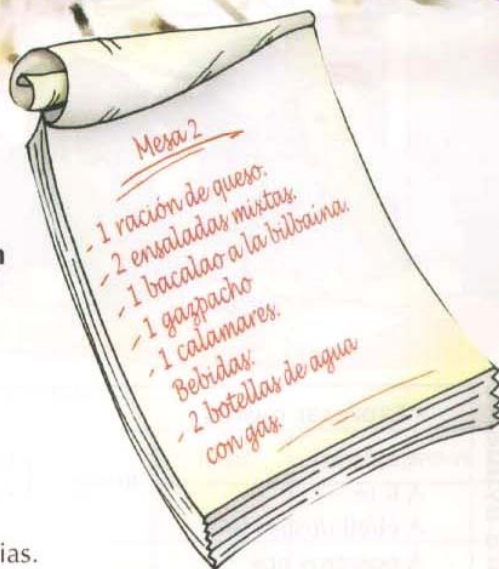 Mesa 2
- 1 ración de queso.
- 2 ensaladas mixtas.
- 1 bacalao a la bilbaína.
- 1 gazpacho
- 1 calamares.
Bebidas:
- 2 botellas de agua
con gas.
ias.